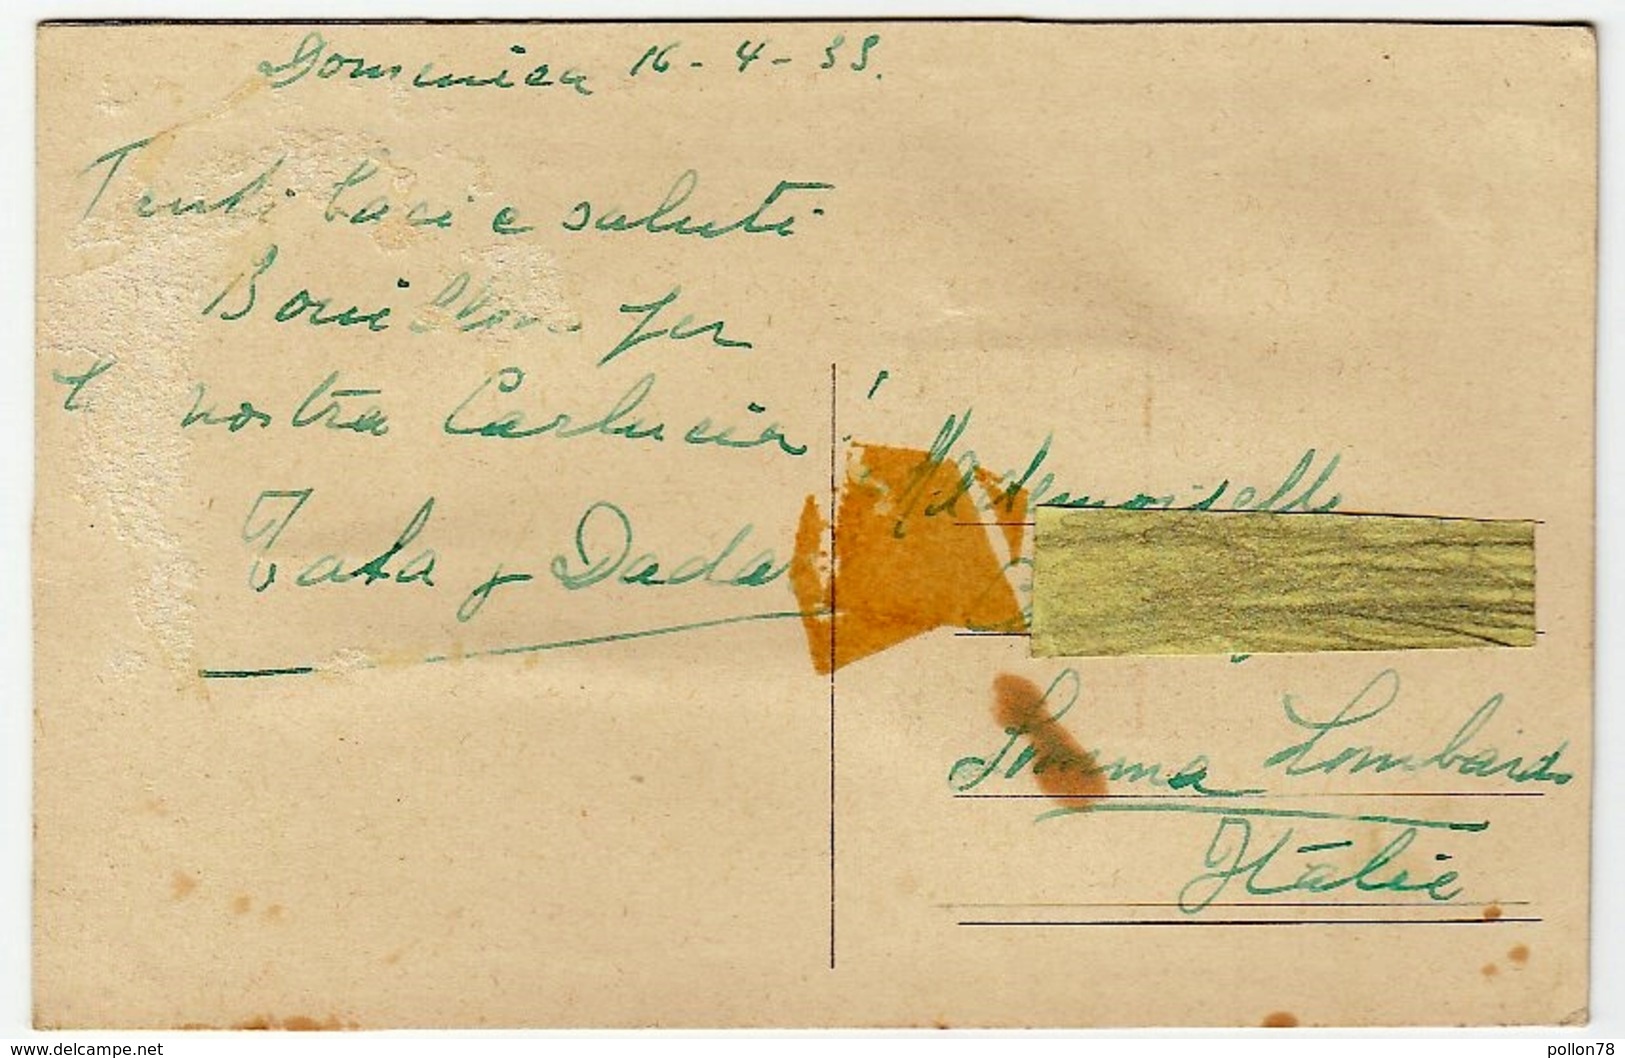 Domenica 16-4-39.
Tanti baci e saluti
per
nostra Carlucia
Tata y Dada
Mademoiselle
Somma Lombardo
Itálie
www.delcampe.net
pollon78